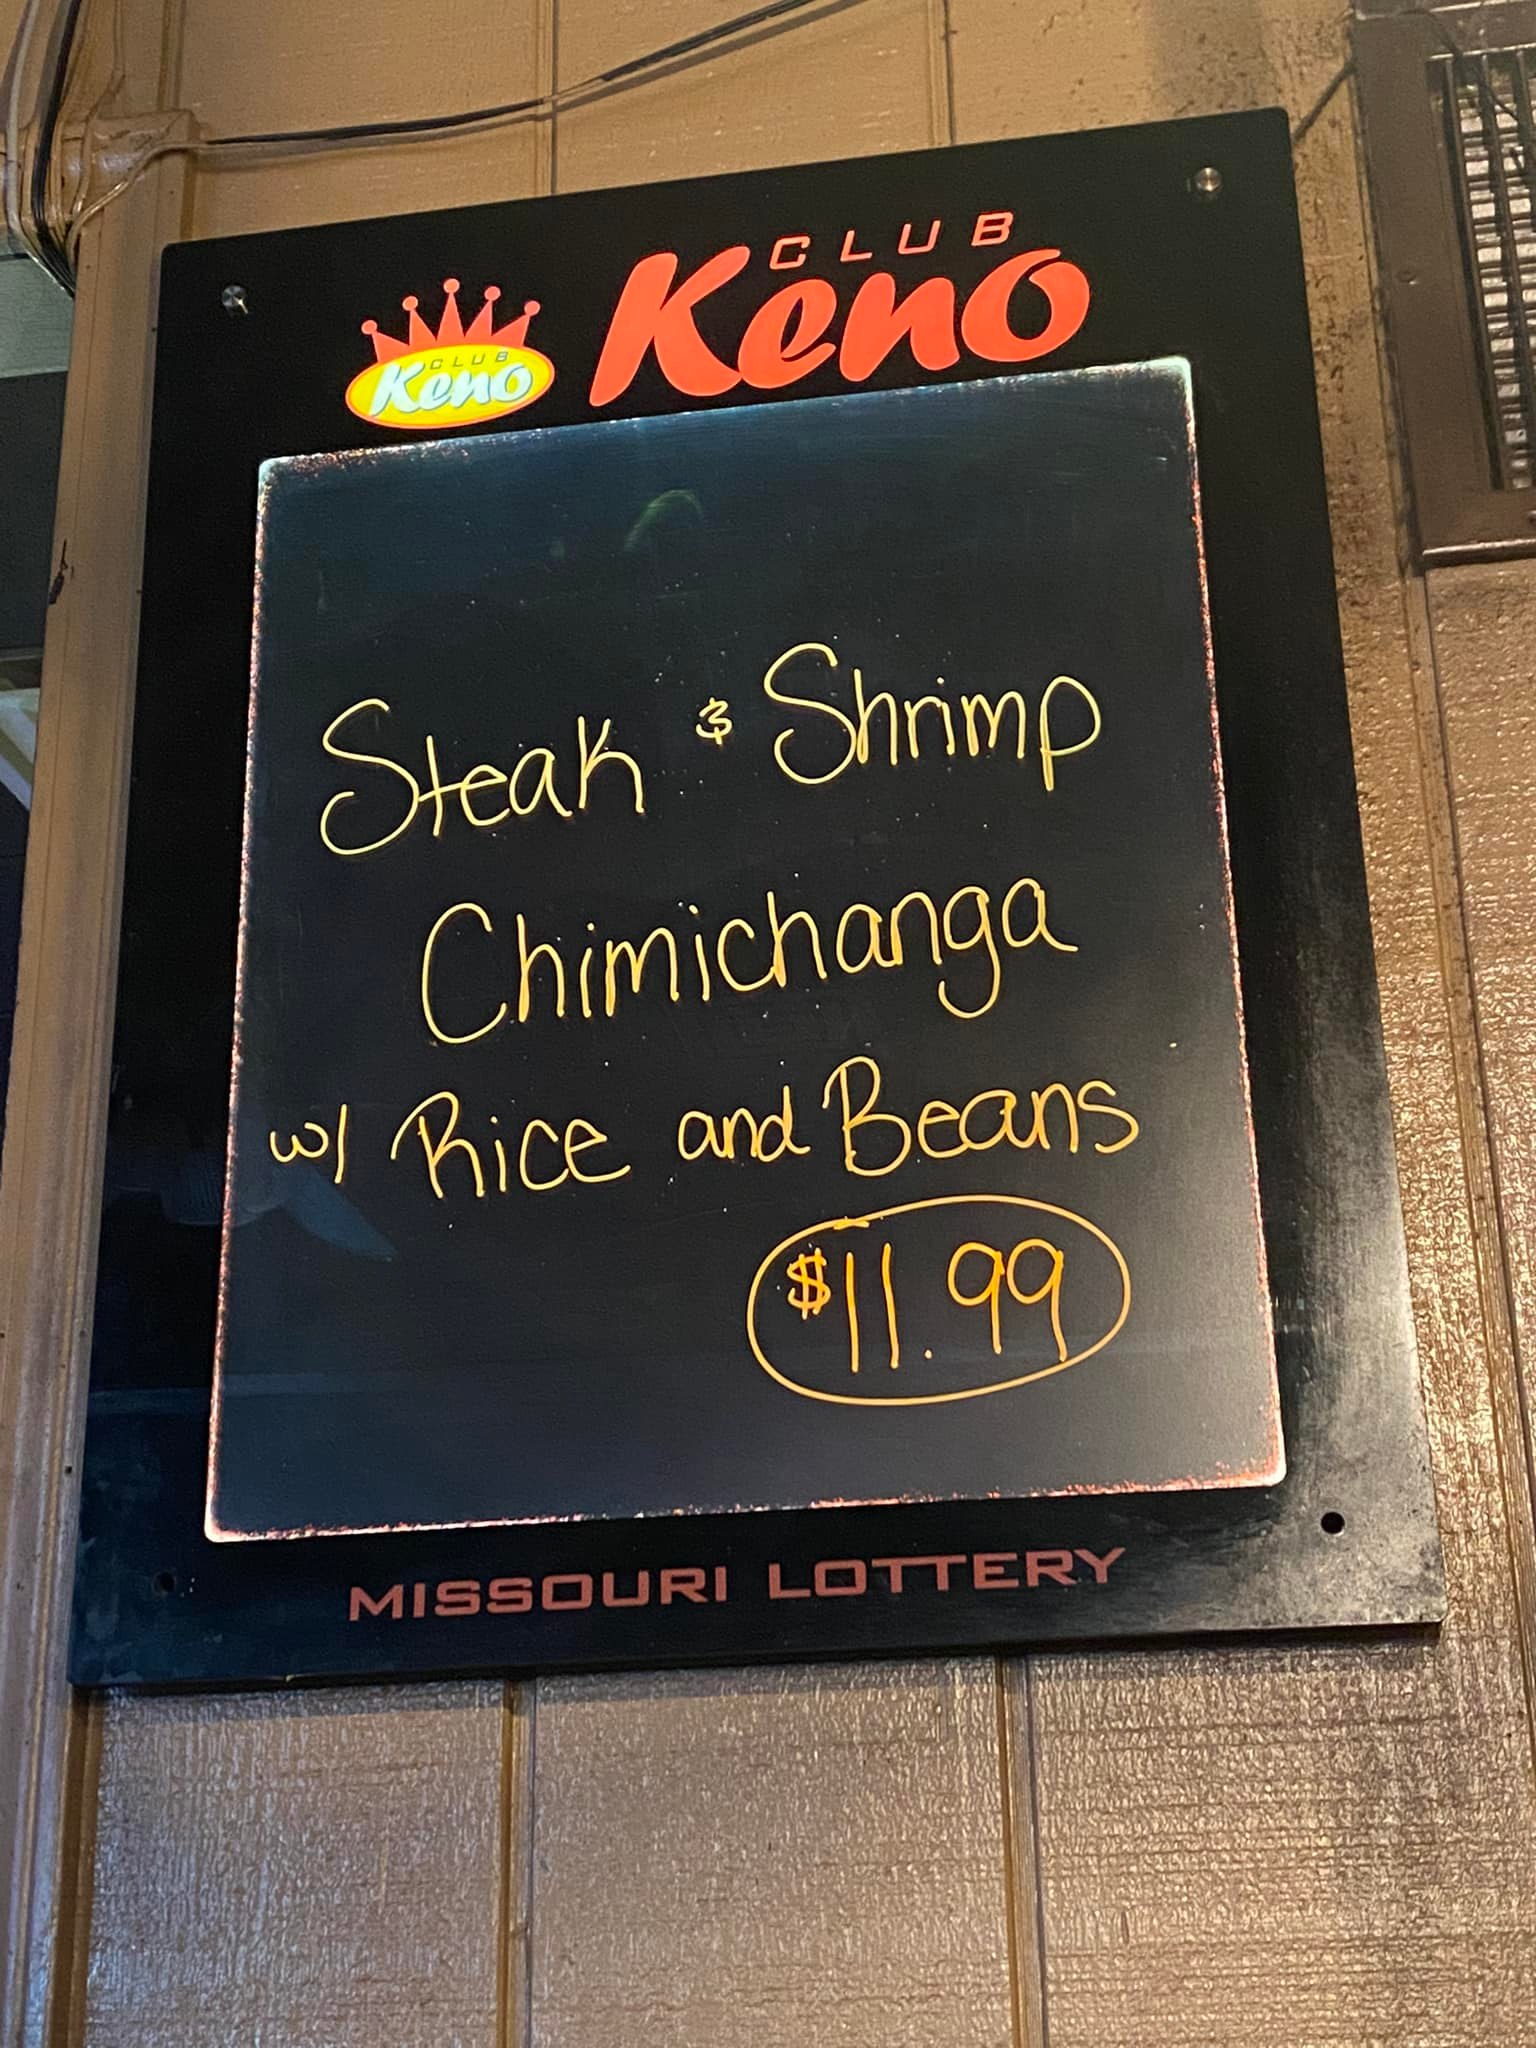 CLUB
Keno
CLUB
Keno
Steak & Shrimp
Chimichanga
w/ Rice and Beans
$11.99
MISSOURI LOTTERY